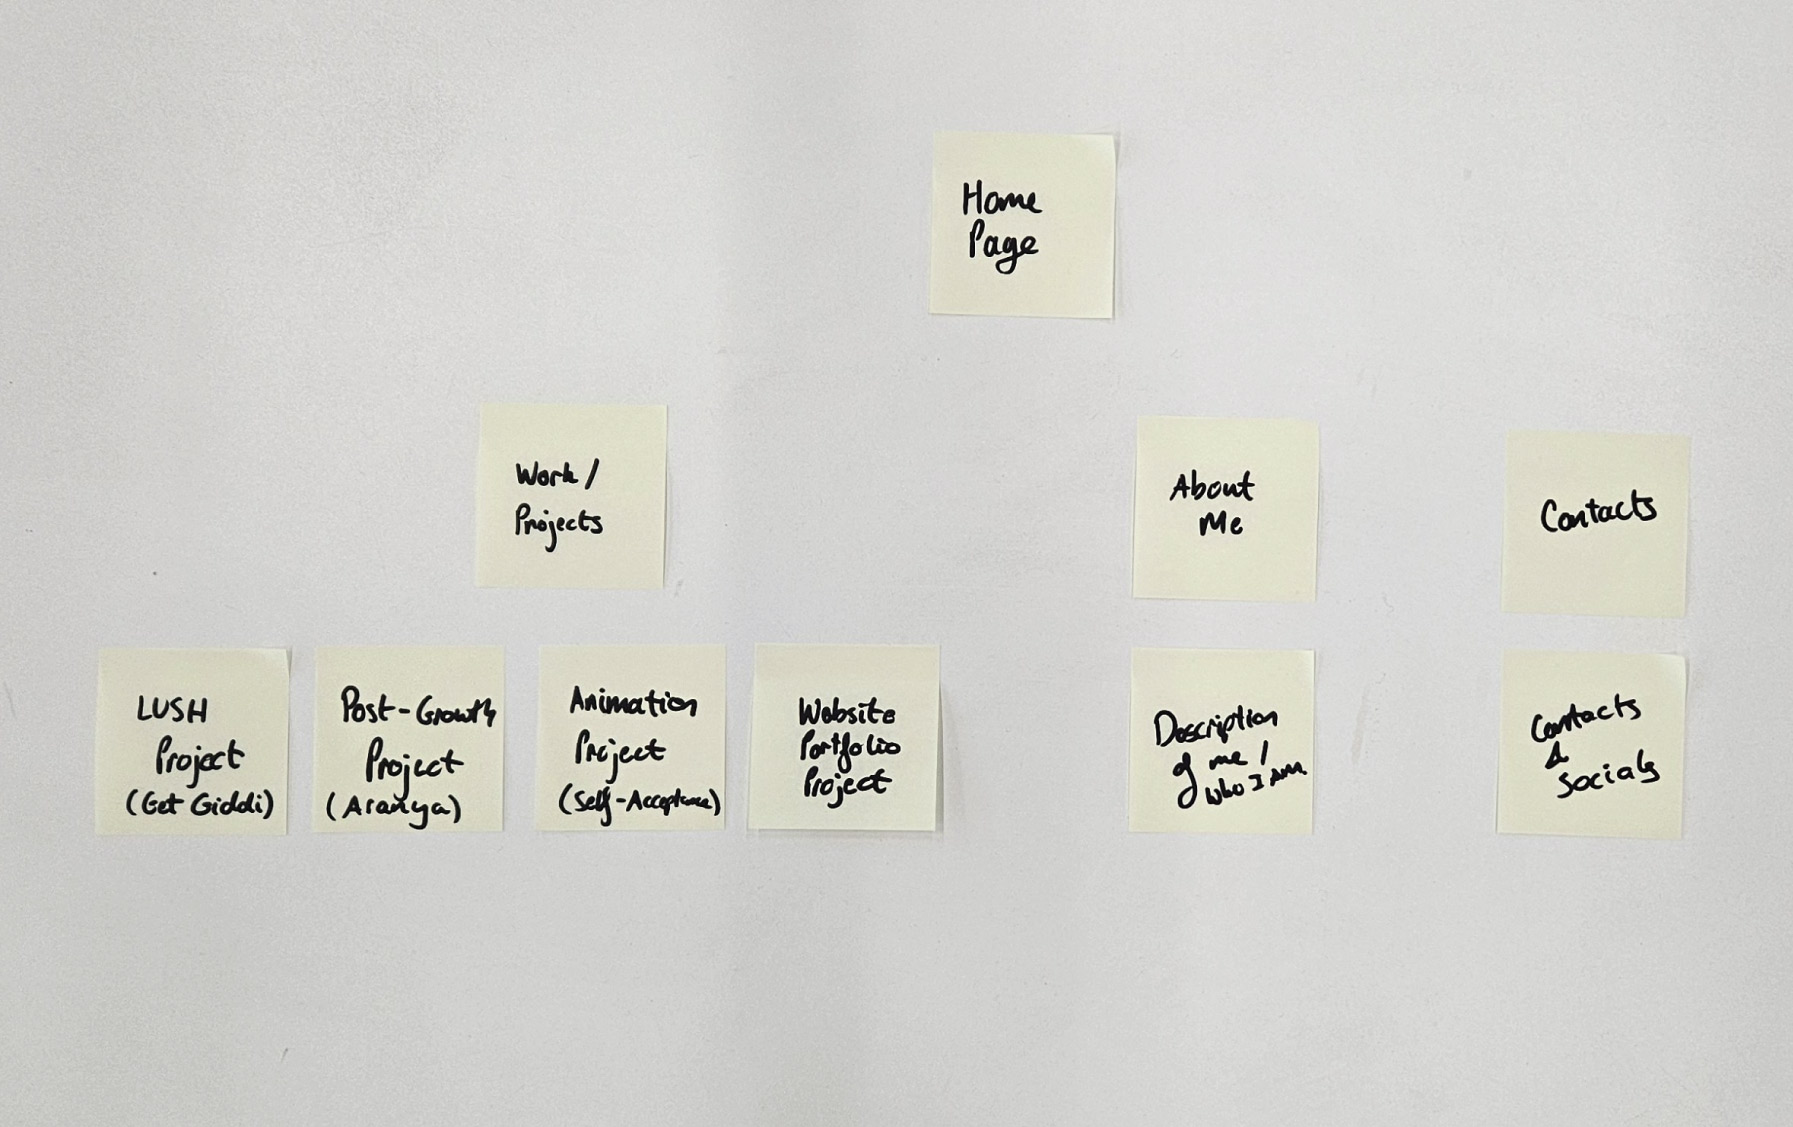 Home
Page
Work /
Projects
About
Me
Contacts
LUSH
Project
(Get Giddi)
Post-Growth
Project
(Aranya)
Animation
Project
(Self-Acceptance)
Website
Portfolio
Project
Description
of me /
who I am
Contacts
&
Socials